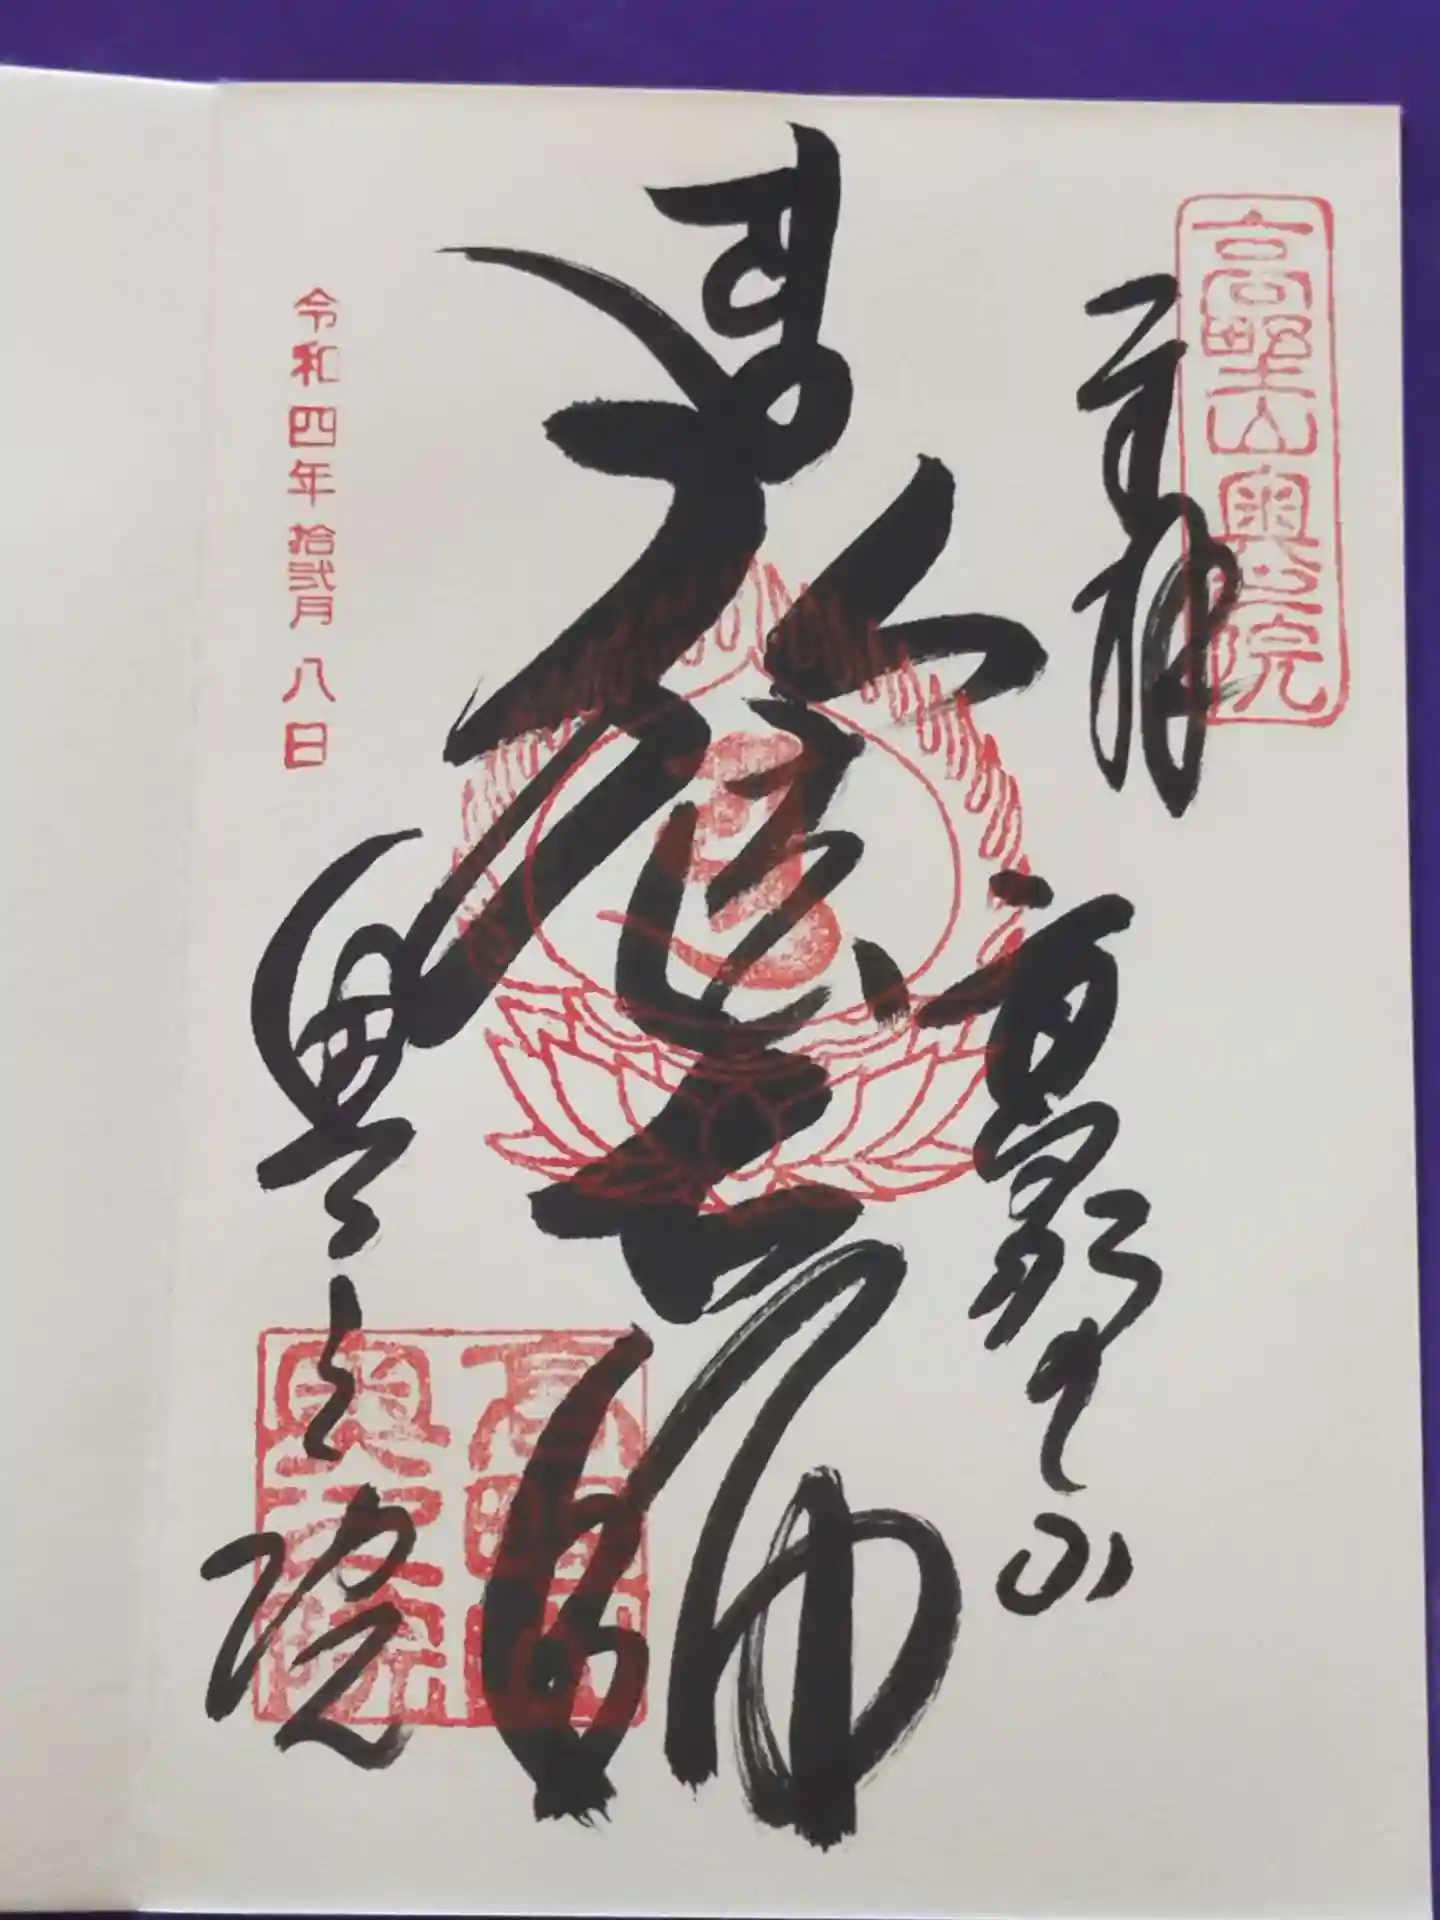 高野山奥之院
奉拝
高野山
大師
令和四年拾弐月八日
奥之院
高野山
奥之院